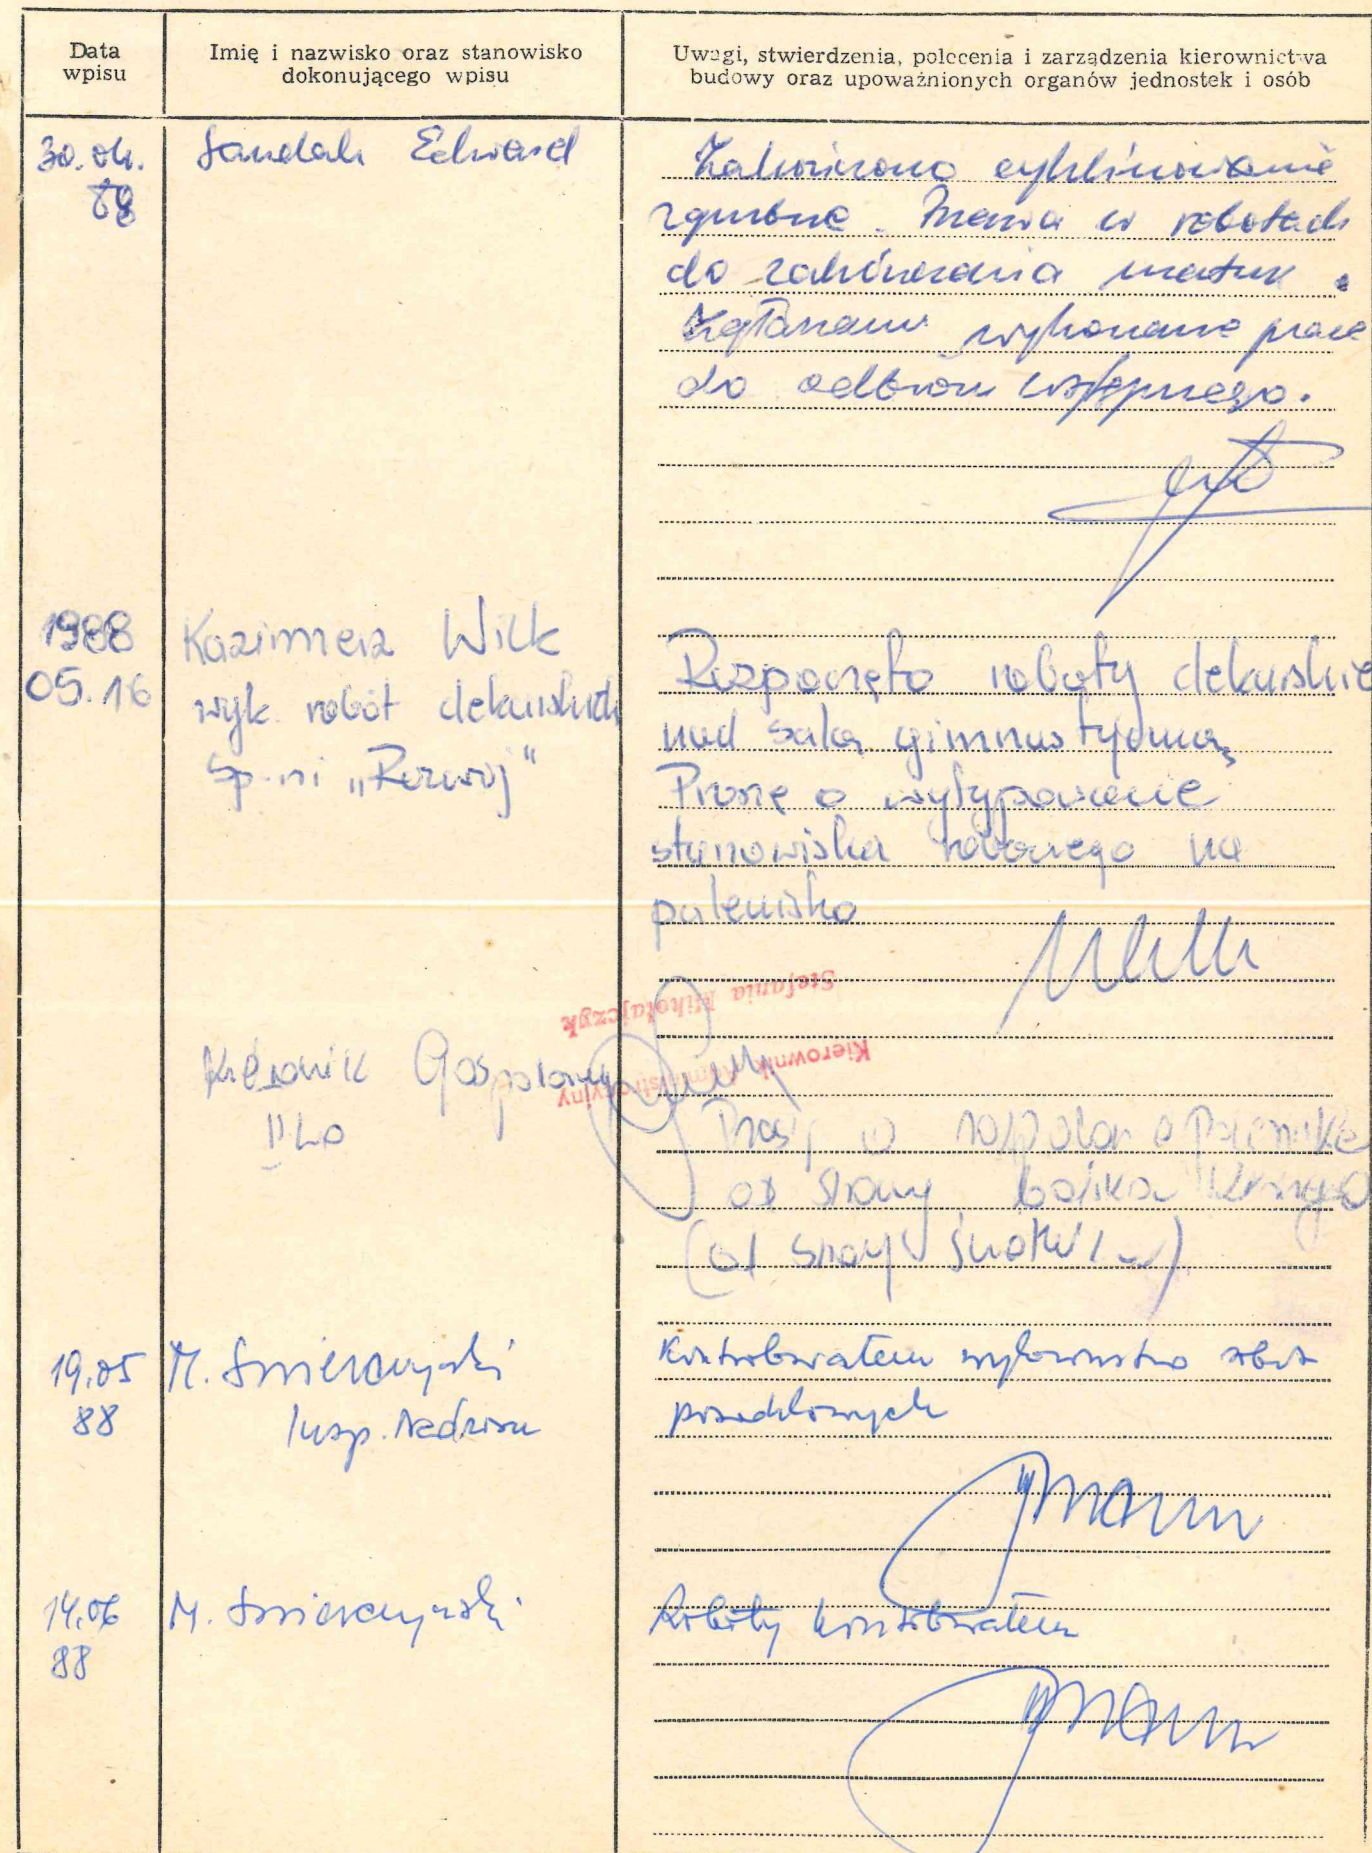 Data
wpisu
Imię i nazwisko oraz stanowisko
dokonującego wpisu
Uwagi, stwierdzenia, polecenia i zarządzenia kierownictwa
budowy oraz upoważnionych organów jednostek i osób
30.04.
88
Edward
Zakończono cyklinowanie
zgrubne. Przerwa w robotach
do zakończenia matur.
Zgłaszam wykonane prace
do odbioru wstępnego.
1988
05.16
Kazimierz Wilk
wyk. robót dekarskich
Sp-ni „Rozwój"
Rozpoczęto roboty dekarskie
nad salą gimnastyczną
Proszę o wytypowanie
stanowiska roboczego na
palenisko
Stefania Mikołajczyk
Kierownik Administracyjny
Kierownik Gospodarczy
II LO
Proszę o
od strony boiska
(od strony
19.05
88
M.
Insp. Nadzoru
Kontrolowałem wykonawstwo robót
posadzkowych
14.06
88
M.
Roboty kontrolowałem